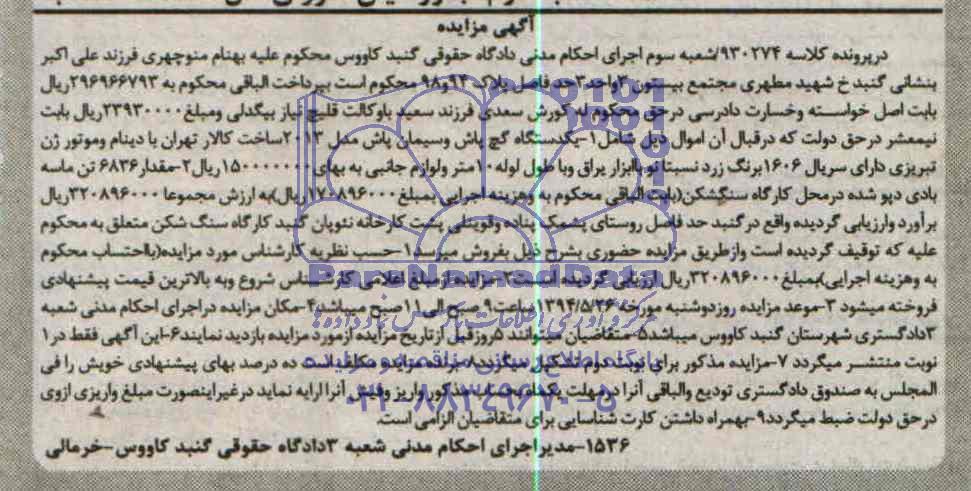 آگهی مزایده
درپرونده کلاسه ۹۳۰۲۷۴/شعبه سوم اجرای احکام مدنی دادگاه حقوقی گنبد کاووس محکوم علیه بهنام منوچهری فرزند علی اکبر
بنشانی گنبد خ شهید مطهری مجتمع بیستون ۲واحد۳حد فاصل پلاک ۹۴و۹۸ محکوم است بپرداخت الباقی محکوم به ۲۹۶۹۶۶۷۹۳ریال
بابت اصل خواسته وخسارت دادرسی درحق محکوم له کورش سعدی فرزند سعید باوکالت قلیچ نیاز بیگدلی ومبلغ۲۳۹۳۰۰۰۰ریال بابت
نیمعشر درحق دولت که درقبال آن اموال ذیل شامل۱-یکدستگاه گچ پاش وسیمان پاش مدل ۲۰۱۳ساخت کالار تهران با دینام وموتور ژن
تبریزی دارای سریال ۱۶۰۶برنگ زرد نسبتا نو باابزار یراق وبا طول لوله ۱۰متر ولوازم جانبی به بهای۱۵۰۰۰۰۰۰۰ریال۲-مقدار۶۸۳۶ تن ماسه
بادی دپو شده درمحل کارگاه سنگشکن(بابت الباقی محکوم به وهزینه اجرایی بمبلغ۱۷۰۸۹۶۰۰۰ریال)به ارزش مجموعا ۳۲۰۸۹۶۰۰۰ریال
برآورد وارزیابی گردیده واقع درگنبد حد فاصل روستای پشمک پناده وقوینلی پشت کارخانه نئوپان گنبد کارگاه سنگ شکن متعلق به محکوم
علیه که توقیف گردیده است وازطریق مزایده حضوری بشرح ذیل بفروش میرسد ۱-حسب نظریه کارشناس مورد مزایده(بااحتساب محکوم
به وهزینه اجرایی)بمبلغ۳۲۰۸۹۶۰۰۰ریال ارزیابی گردیده است۲-مزایده ازمبلغ اعلامی کارشناس شروع وبه بالاترین قیمت پیشنهادی
فروخته میشود ۳-موعد مزایده روزدوشنبه مورخه ۱۳۹۴/۵/۲۶ ساعت ۹ صبح الی ۱۱صبح میباشد۴-مکان مزایده دراجرای احکام مدنی شعبه
۳دادگستری شهرستان گنبد کاووس میباشد۵-متقاضیان میتوانند ۵روزقبل ازتاریخ مزایده ازمورد مزایده بازدید نمایند۶-این آگهی فقط در۱
نوبت منتشر میگردد ۷-مزایده مذکور برای نوبت دوم تشکیل میگردد۸-برنده مزایده مکلف است ده درصد بهای پیشنهادی خویش را فی
المجلس به صندوق دادگستری تودیع والباقی آنرا درمهلت یکماه بحساب مذکور واریز وفیش آنرا ارایه نماید درغیراینصورت مبلغ واریزی ازوی
درحق دولت ضبط میگردد۹-بهمراه داشتن کارت شناسایی برای متقاضیان الزامی است.
۱۵۳۶-مدیراجرای احکام مدنی شعبه ۳دادگاه حقوقی گنبد کاووس-خرمالی
ParsNamadData
مرکز فرآوری اطلاعات پارس نماد داده ها
پایگاه اطلاع رسانی مناقصه و مزایده
۰۲۱-۸۸۳۴۹۶۷۰-۵